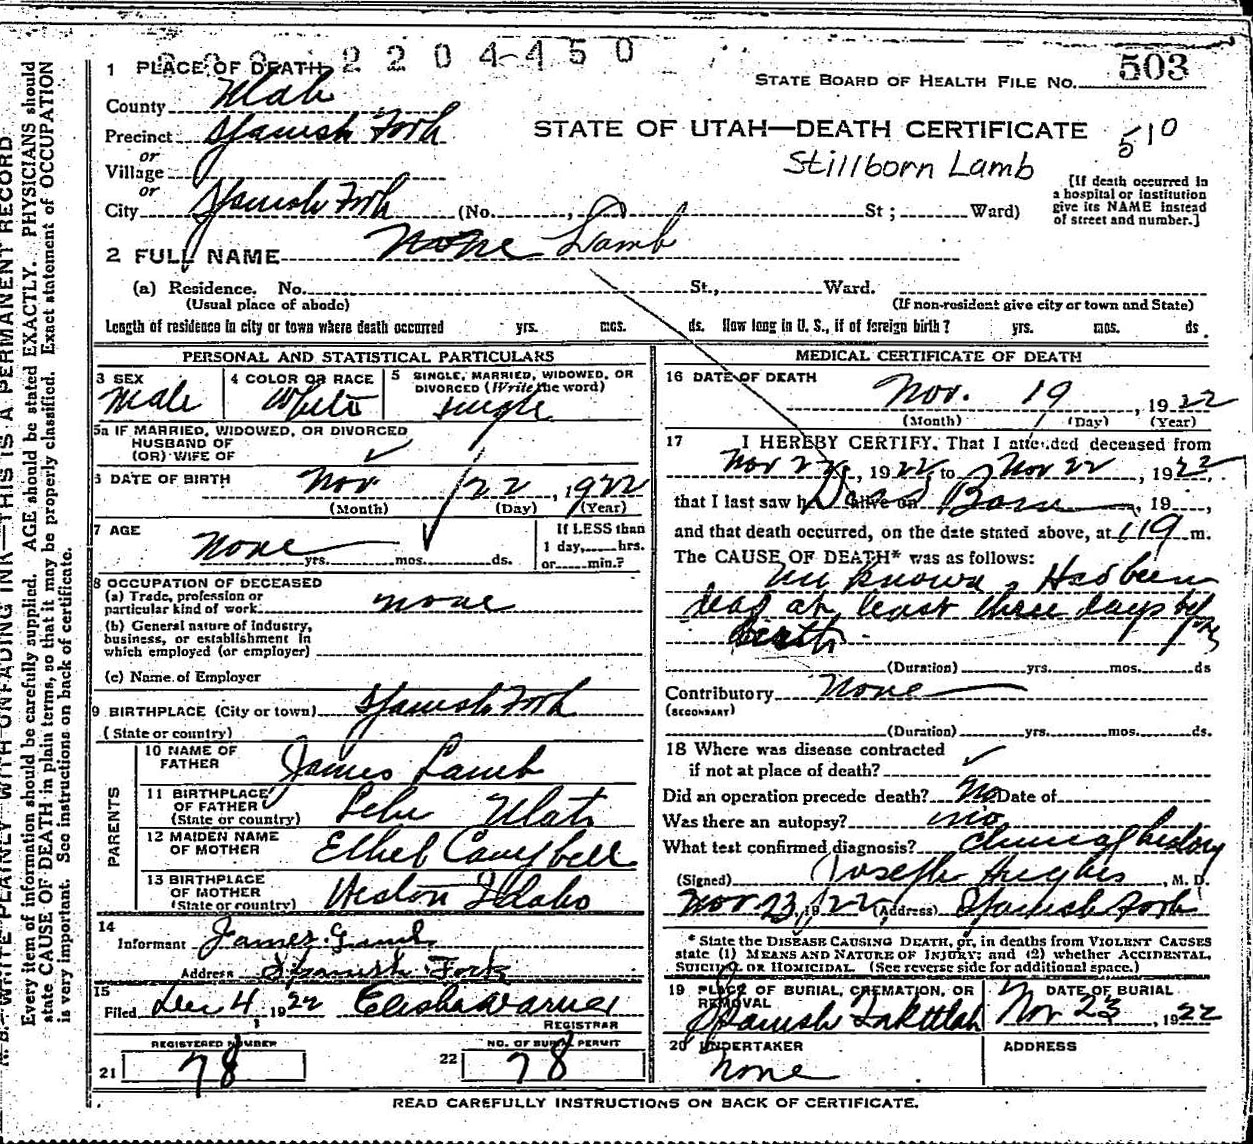 2204450
1 PLACE OF DEATH
STATE BOARD OF HEALTH FILE NO. 503
County Utah
Precinct Spanish Fork
STATE OF UTAH—DEATH CERTIFICATE 510
or
Village
Stillborn Lamb
or
City Spanish Fork (No. , St ; Ward)
[If death occurred in
a hospital or institution
give its NAME instead
of street and number.]
2 FULL NAME None Lamb
(a) Residence. No. St., Ward.
(Usual place of abode) (If non-resident give city or town and State)
Length of residence in city or town where death occurred yrs. mos. ds. How long in U. S., if of foreign birth? yrs. mos. ds.
PERSONAL AND STATISTICAL PARTICULARS
3 SEX Male
4 COLOR OR RACE White
5 SINGLE, MARRIED, WIDOWED, OR
DIVORCED (Write the word)
single
5a IF MARRIED, WIDOWED, OR DIVORCED
HUSBAND OF
(OR) WIFE OF
6 DATE OF BIRTH Nov 22, 1922
(Month) (Day) (Year)
7 AGE None yrs. mos. ds.
If LESS than
1 day, hrs.
or min.?
8 OCCUPATION OF DECEASED
(a) Trade, profession or
particular kind of work none
(b) General nature of industry,
business, or establishment in
which employed (or employer)
(c) Name of Employer
9 BIRTHPLACE (City or town) Spanish Fork
(State or country)
PARENTS
10 NAME OF
FATHER James Lamb
11 BIRTHPLACE
OF FATHER
(State or country) Lehi Utah
12 MAIDEN NAME
OF MOTHER Ethel Campbell
13 BIRTHPLACE
OF MOTHER
(State or country) Weston Idaho
14
Informant James Lamb
Address Spanish Fork
15
Filed Dec 4 1922 Elisha Warner
REGISTRAR
REGISTERED NUMBER
21 78
NO. OF BURIAL PERMIT
22 78
MEDICAL CERTIFICATE OF DEATH
16 DATE OF DEATH
Nov. 19, 1922
(Month) (Day) (Year)
17 I HEREBY CERTIFY, That I attended deceased from
Nov 22, 1922, to Nov 22, 1922
that I last saw h alive on Dead Born, 19 ,
and that death occurred, on the date stated above, at 119 m.
The CAUSE OF DEATH* was as follows:
Unknown, Had been
dead at least three days before
birth
(Duration) yrs. mos. ds
Contributory None
(SECONDARY)
(Duration) yrs. mos. ds.
18 Where was disease contracted
if not at place of death?
Did an operation precede death? No Date of
Was there an autopsy? no
What test confirmed diagnosis? Clinical history
(Signed) Joseph Hughes, M. D.
Nov 23, 1922 (Address) Spanish Fork
* State the DISEASE CAUSING DEATH, or, in deaths from VIOLENT CAUSES
state (1) MEANS AND NATURE OF INJURY; and (2) whether ACCIDENTAL,
SUICIDAL OR HOMICIDAL. (See reverse side for additional space.)
19 PLACE OF BURIAL, CREMATION, OR
REMOVAL
Spanish Fork Utah
DATE OF BURIAL
Nov 23, 1922
20 UNDERTAKER
none
ADDRESS
READ CAREFULLY INSTRUCTIONS ON BACK OF CERTIFICATE.
N. B.—WRITE PLAINLY WITH UNFADING INK—THIS IS A PERMANENT RECORD
Every item of information should be carefully supplied. AGE should be stated EXACTLY. PHYSICIANS should
state CAUSE OF DEATH in plain terms, so that it may be properly classified. Exact statement of OCCUPATION
is very important. See instructions on back of certificate.